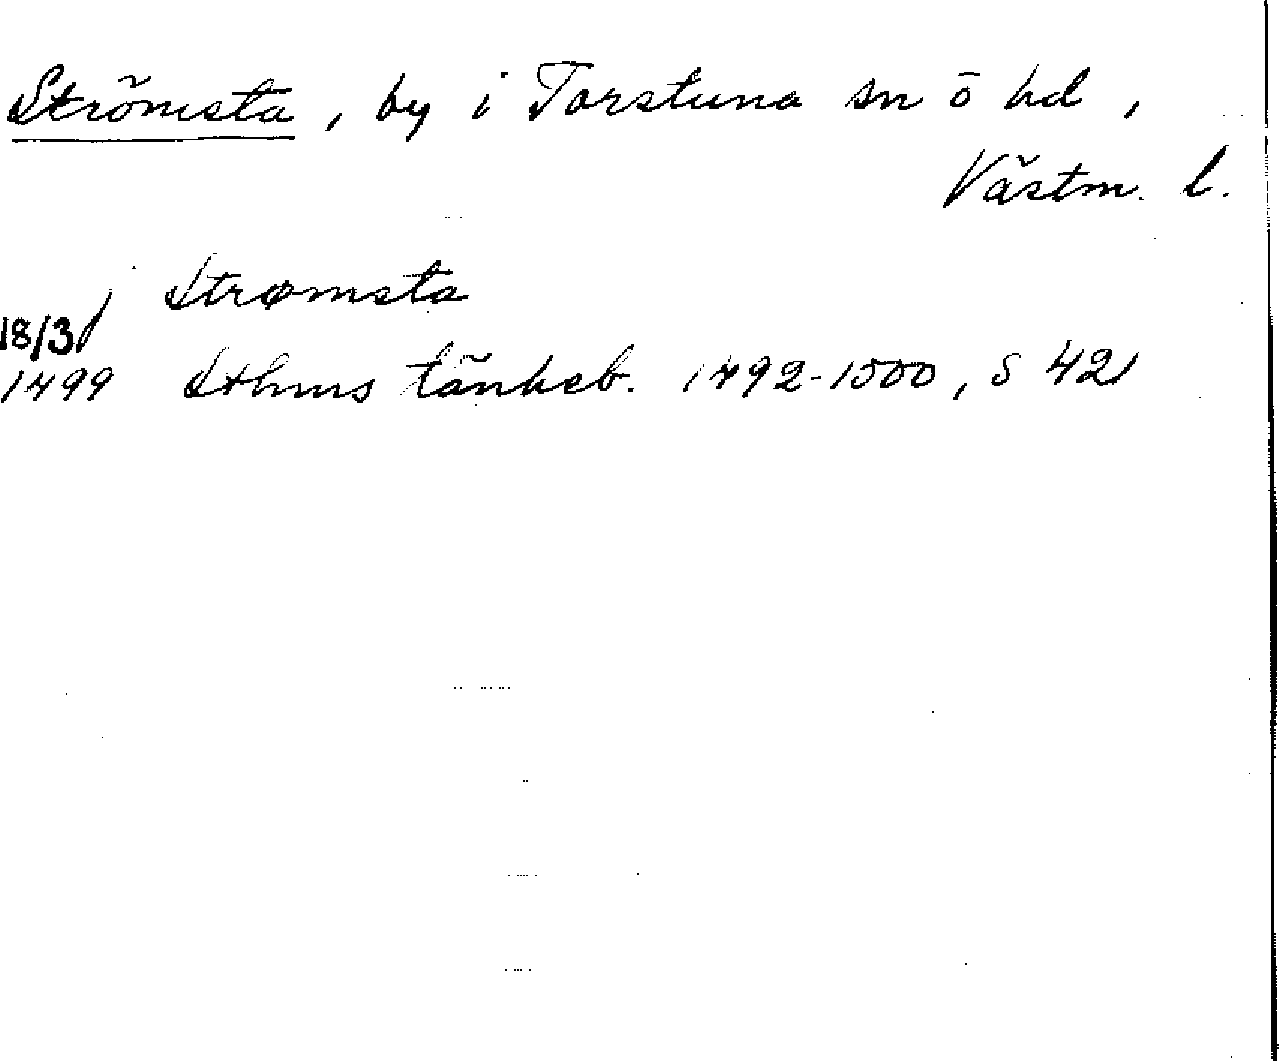 Strömsta, by i Torstuna sn o hd,
Västm. l.
i Strømsta
18/3
1499 Sthms tänkeb. 1492-1500, s 421